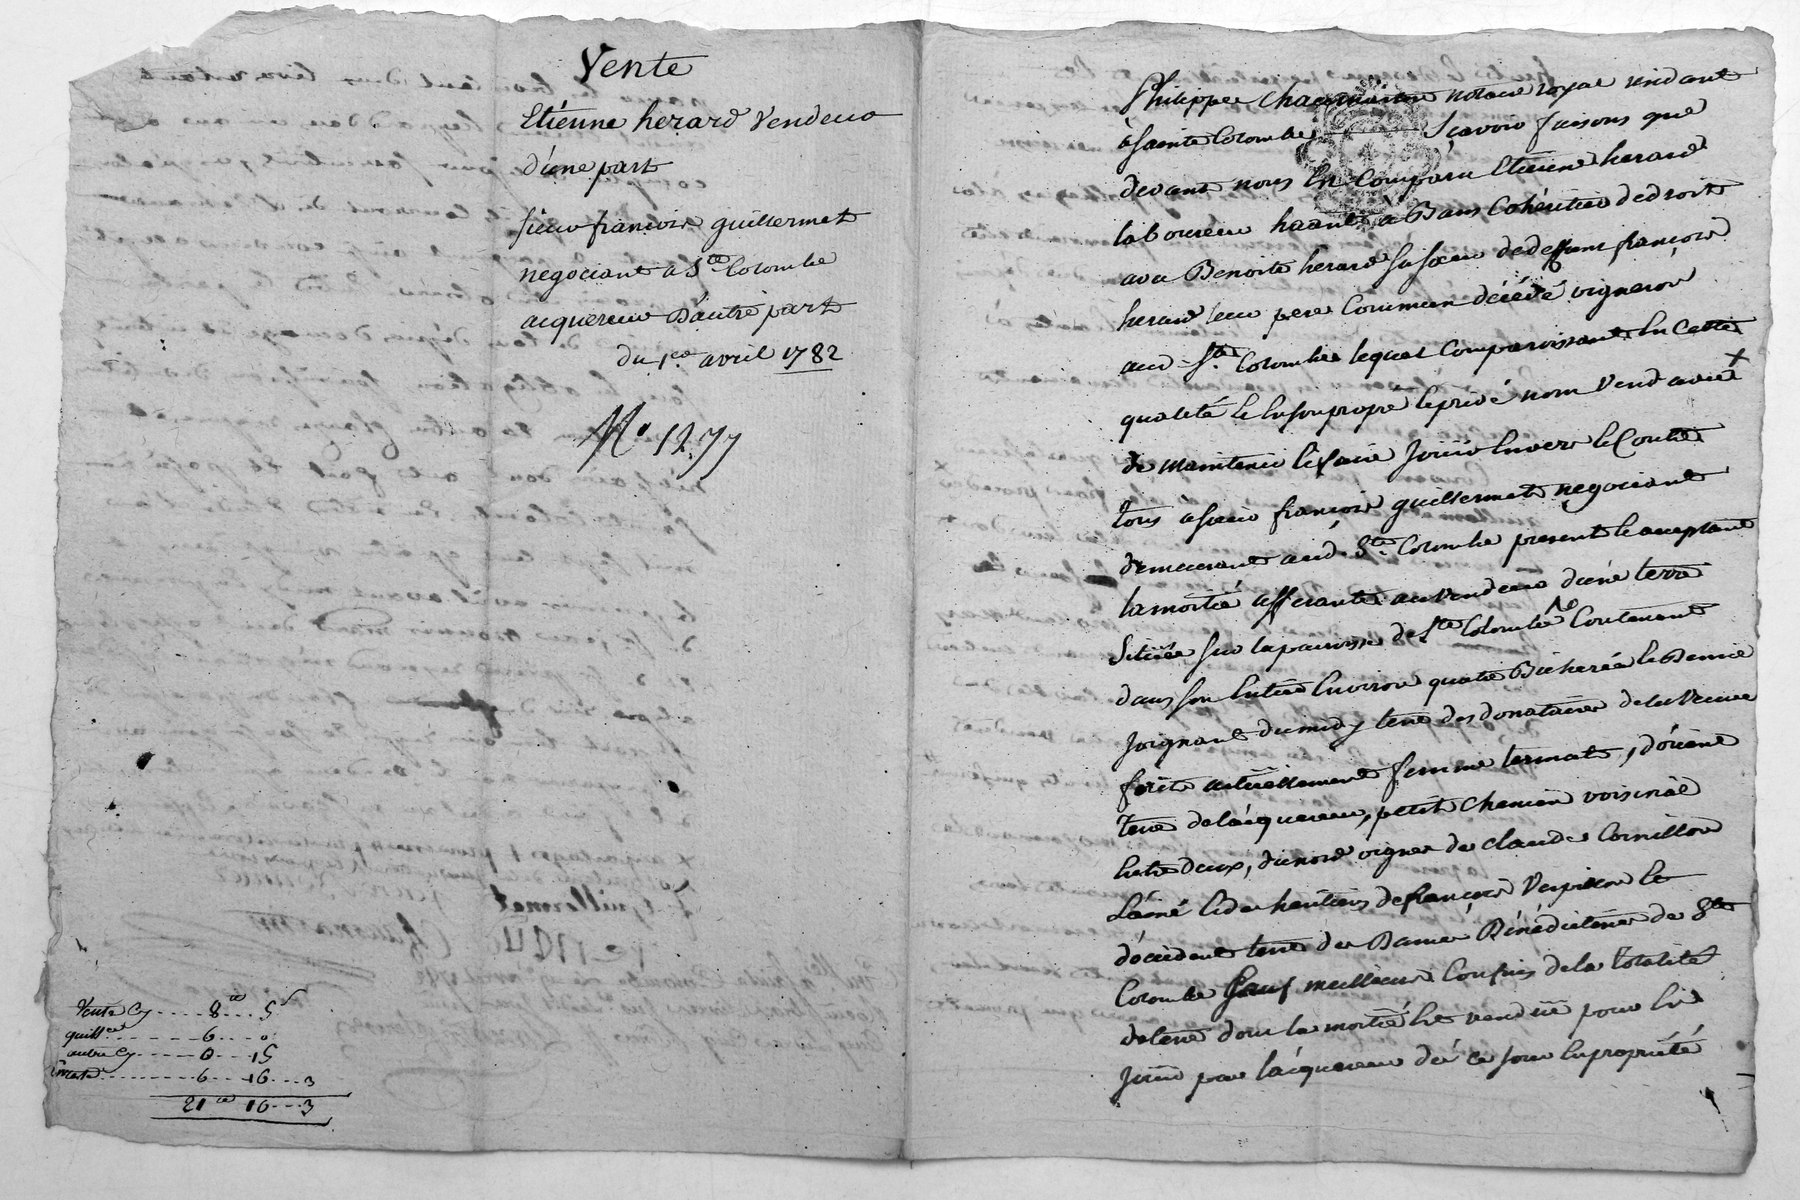 Vente
Etienne herard Vendeur
d'une part
sieur françois guillermet
negociant a Ste Colombe
acquereur D'autre part
du 1er avril 1782
No 1277
Vente Cy .... 8 ... 5
6 ... 0
autre Cy .... 0 ... 15
6 ... 16 ... 3
21 16 ... 3
Philippe notaire royal residant
a sainte Colombe Sçavoir faisons que
devant nous En Comparu Etienne herard
laboureur a Bans Coheritier de droit
avec Benoite herard sa soeur de deffunt françois
herard leur pere Commun décédé vigneron
aud. Ste Colombe lequel Comparoissant En Cette
qualité Et En son propre Et privé nom Vend avec
de maintenir Et faire Jouir Envers Et Contre
tous à sieur françois guillermet negociant
demeurant aud. Ste Colombe present Et acceptant
la moitié afferante au Vendeur d'une terre
Située sur la paroisse de Ste Colombe Contenant
dans son Entier Environ quatre Bicherée Et Demie
Joignant du midy terre des donataires de la Veuve
actuellement femme termat, d'orient
terre de l'acquereur, petit Chemin voisinal
Entre deux, du nord vignes de Claude Cornillon
L'ainé Et des heritiers de françois Et
d'occident terre des Dames Bénédictines de Ste
Colombe Sauf meilleurs Confins de la totalité
de terre dont la moitié Est venduë pour En
Jouir par l'acquereur dès ce jour En propriété